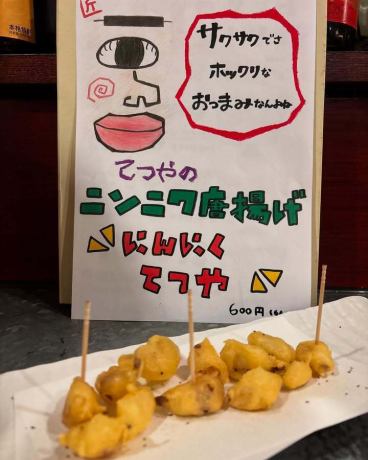 匠
サクサクでさ
ホックリな
おつまみなんよね
てつやの
ニンニク唐揚げ
にんにく
てつや
600円